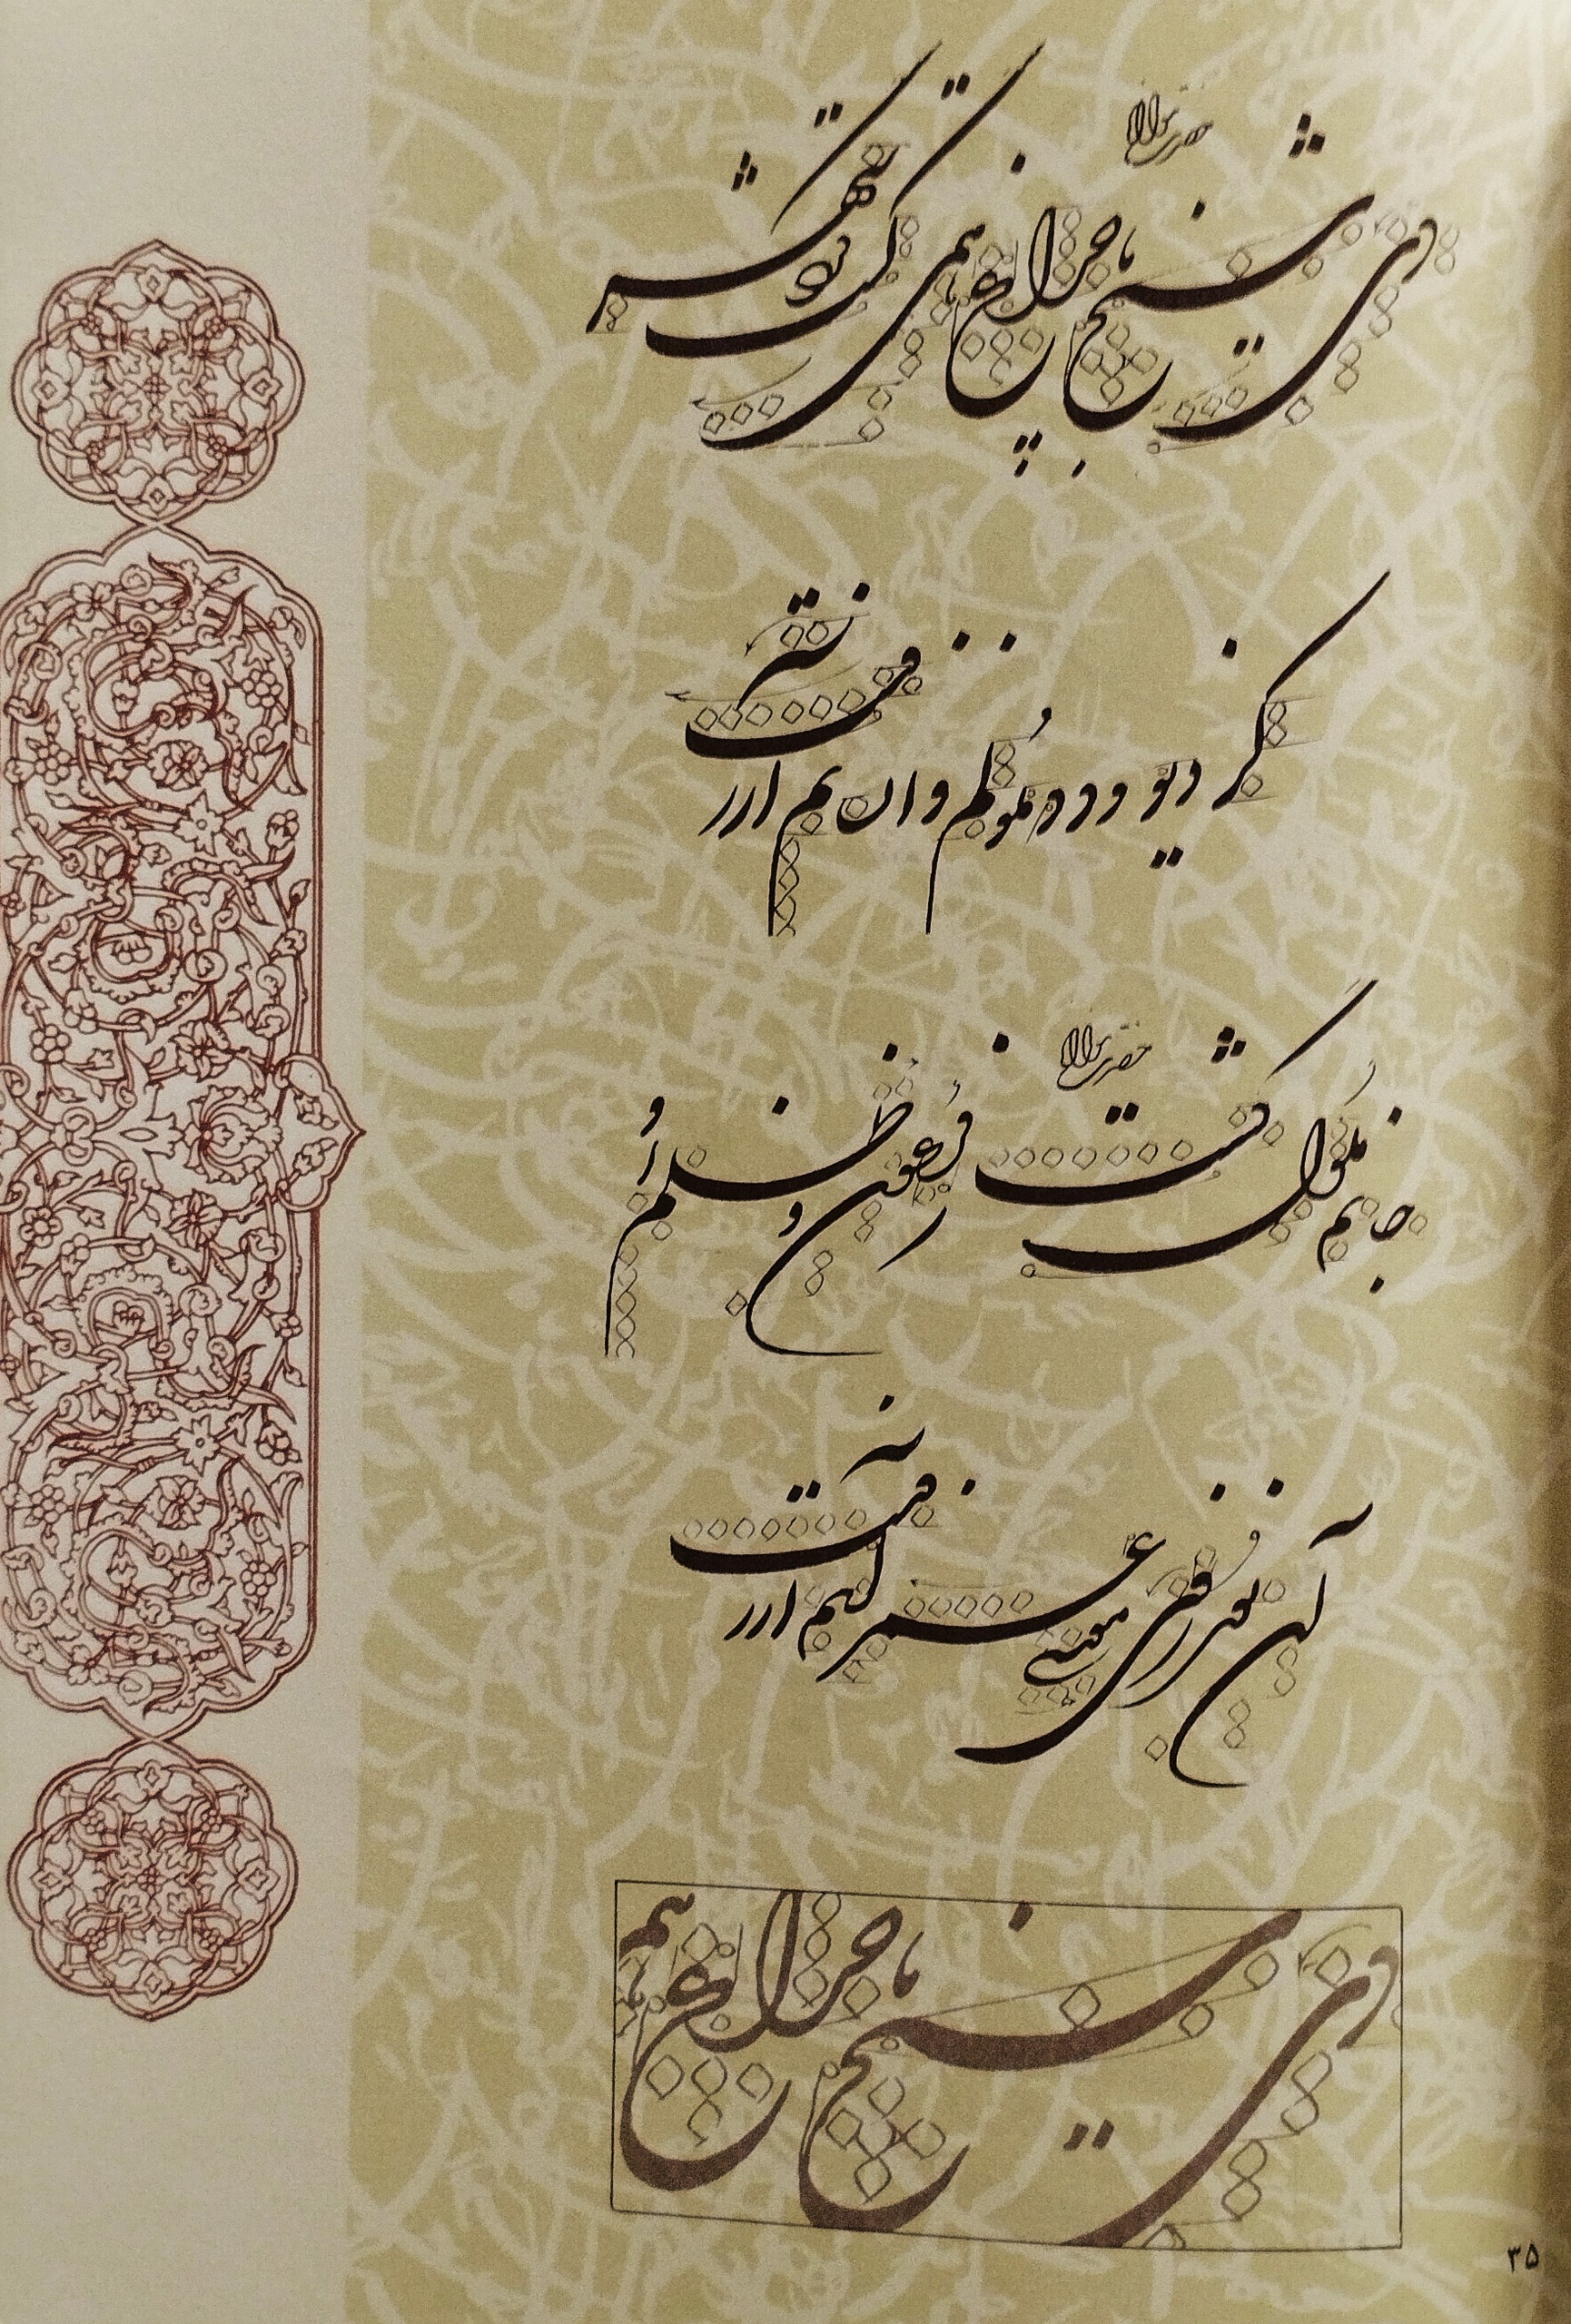 حضرت مولانا
دی شیخ با چراغ همی گشت گرد شهر
کز دیو و دد ملولم و انسانم آرزوست
حضرت مولانا
جانم ملول گشت ز فرعون و ظلم او
آن نور روی موسی عمرانم آرزوست
دی شیخ با چراغ
۳۵